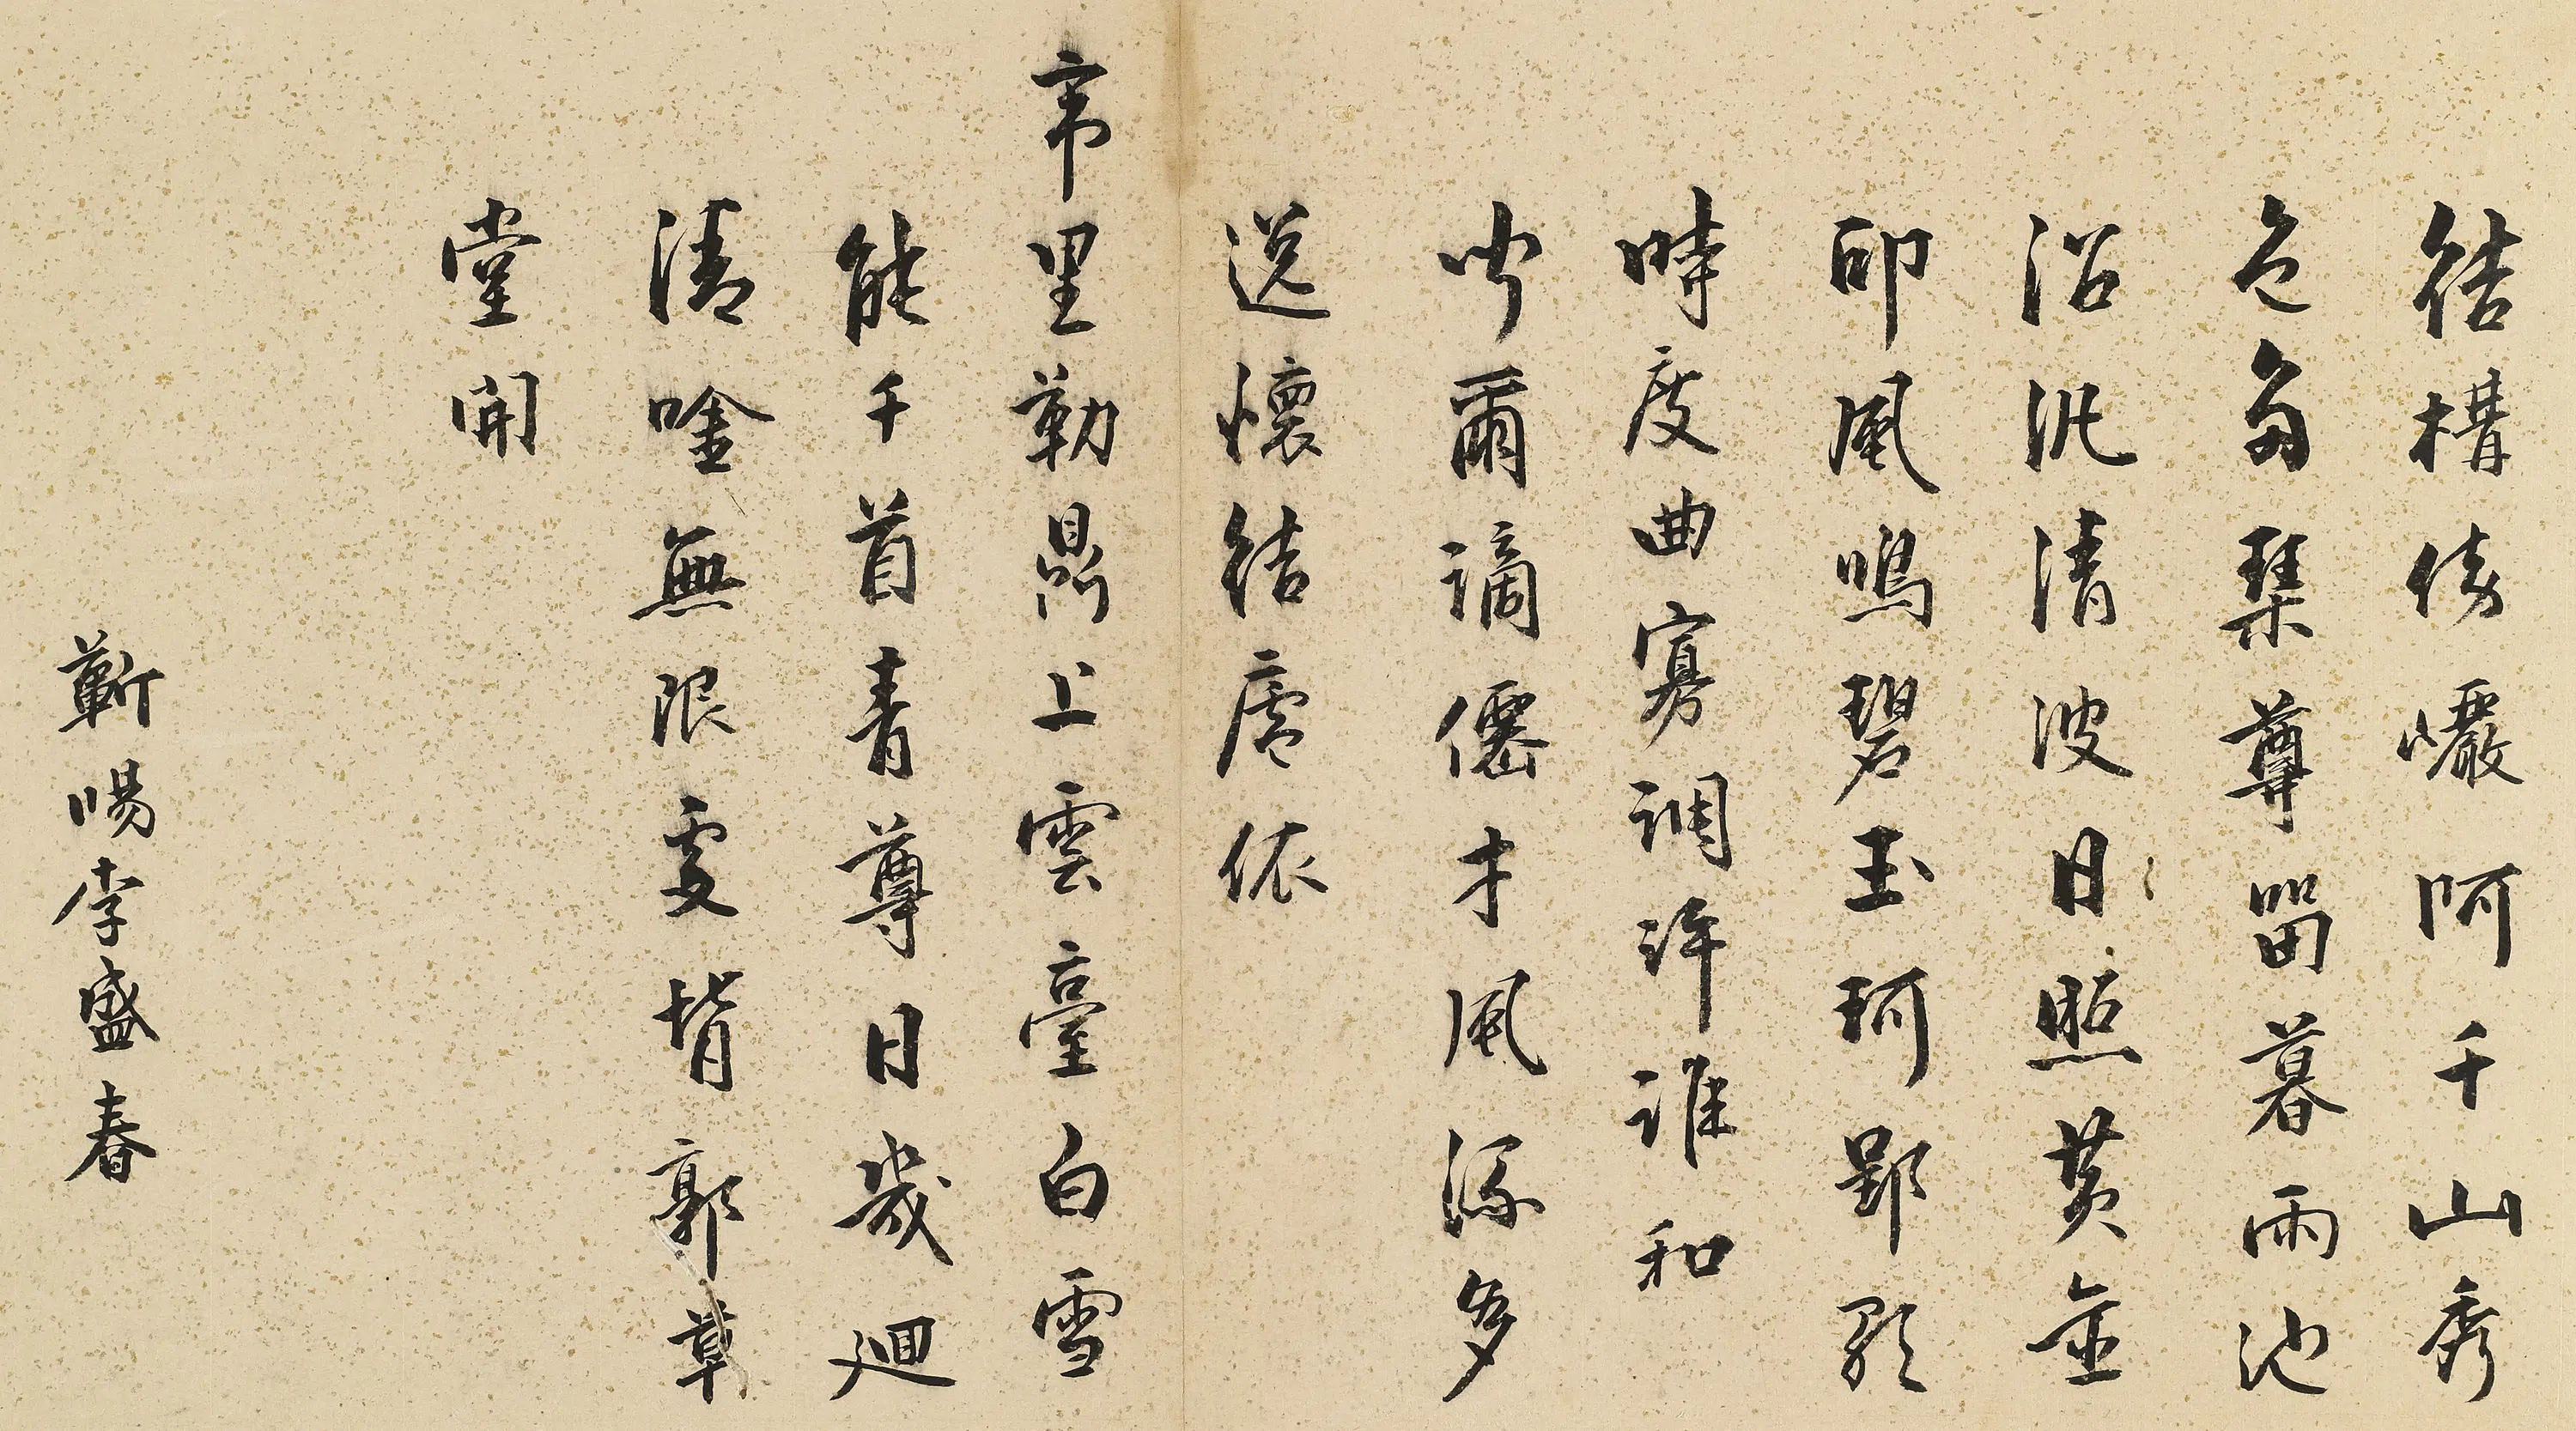 結構倚巖阿千山秀
色多琴尊留暮雨池
沼汎清波日照黃金
印風鳴碧玉珂郢歌
時度曲寡調許誰和
吁爾謫僊才風流多
逸懷結廬依
帝里勒鼎上雲臺白雪
能千首青尊日幾迴
清唫無限處背郭草
堂開
蘄陽李盛春